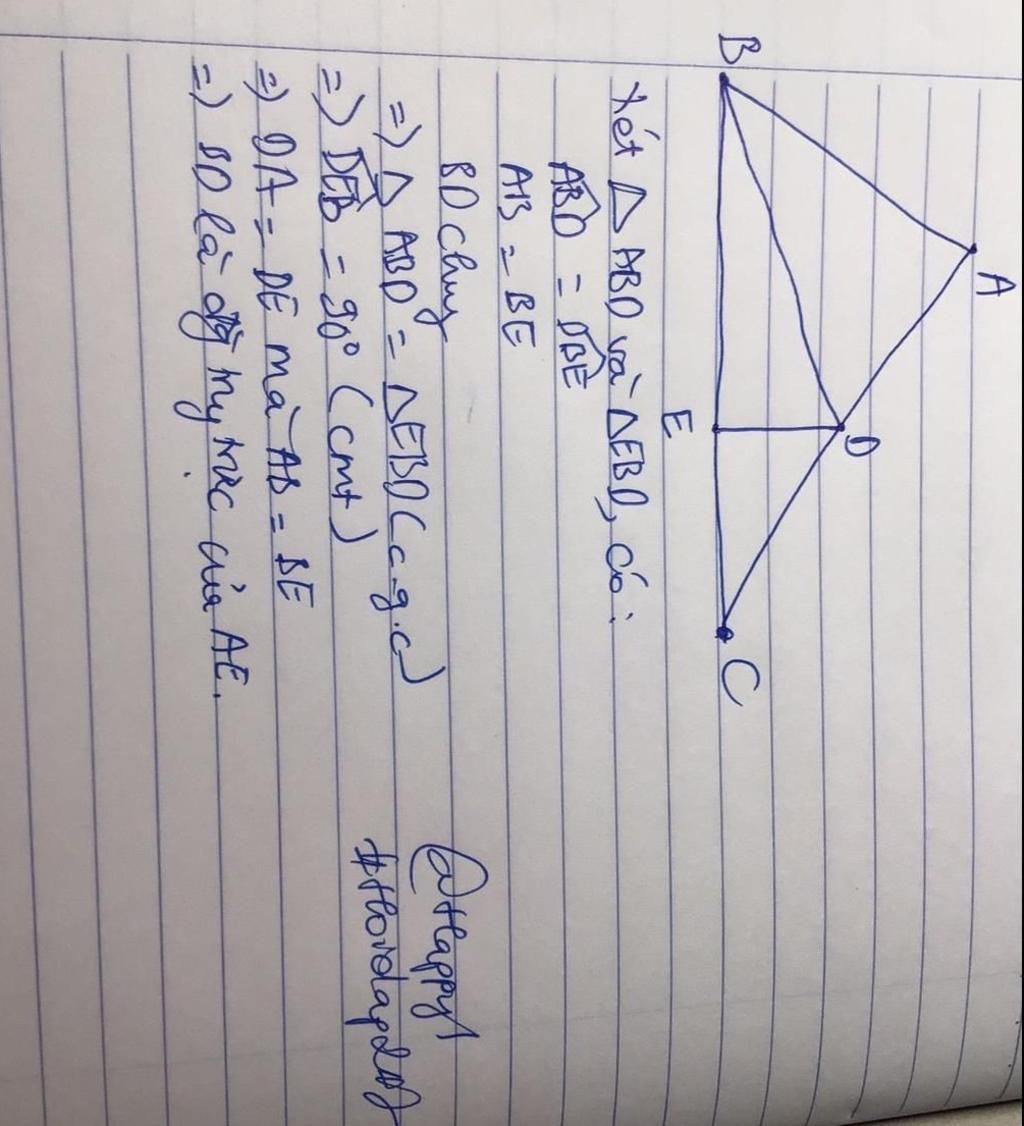 B
A
D
E
C
Xét △ ABD và △EBD, có:
ABD̂ = DBÊ
AB = BE
BD chung
=) △ ABD = △EBD (c-g.c)
=) DEB̂ = 90° (cmt)
=) DA = DE mà AB = BE
=) BD là đg trung trực của AE.
@Happy1